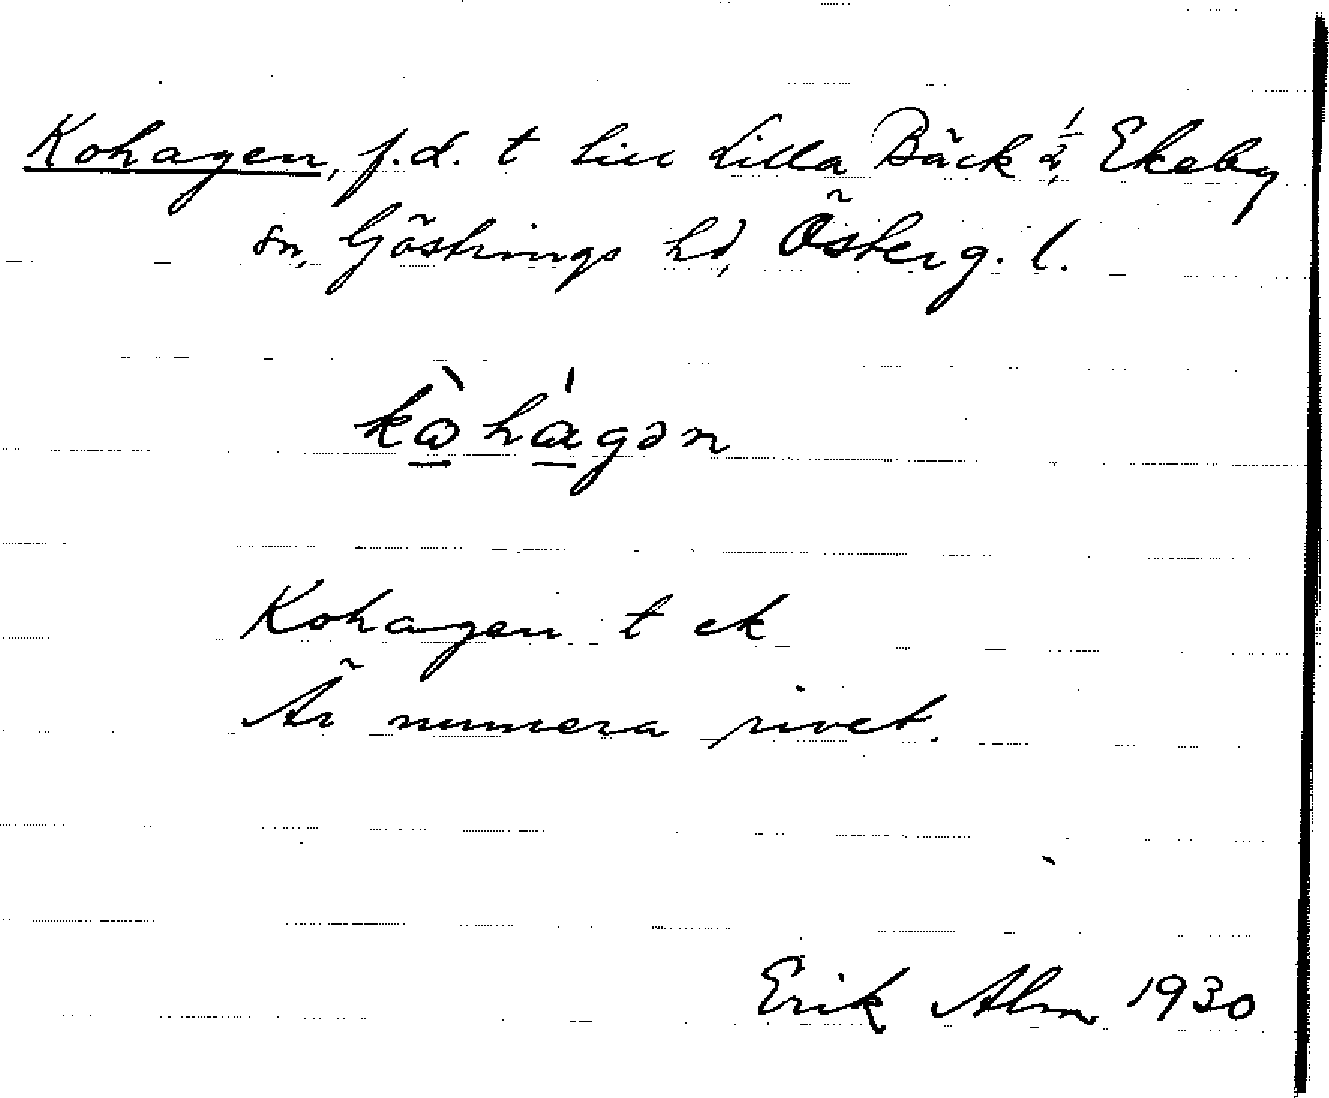 Kohagen, f.d. t till Lilla Bäck ½, Ekeby
sn, Göstrings hd, Österg. l.
kòhágən
Kohagen t ek
Är numera rivet.
Erik Alm 1930